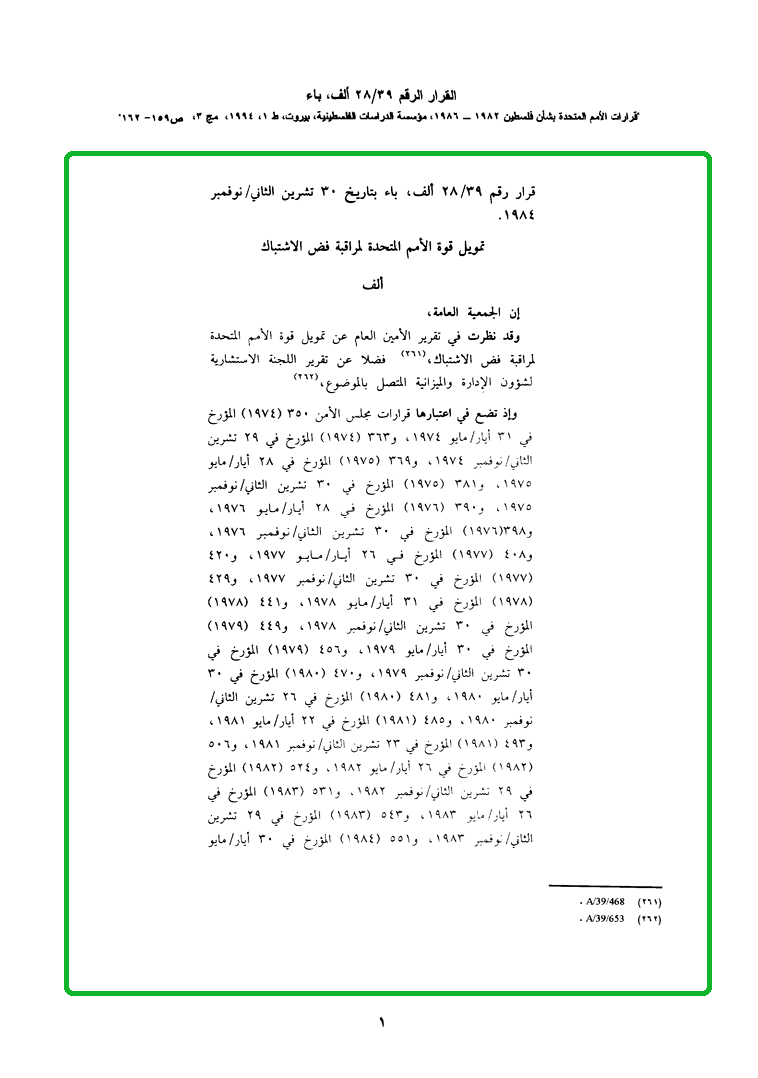 القرار الرقم ٢٨/٣٩ ألف، باء
"قرارات الأمم المتحدة بشأن فلسطين ١٩٨٢ ــ ١٩٨٦، مؤسسة الدراسات الفلسطينية، بيروت، ط ١، ١٩٩٤، مج ٣، ص١٥٩- ١٦٢"
قرار رقم ٢٨/٣٩ ألف، باء بتاريخ ٣٠ تشرين الثاني/نوفمبر
١٩٨٤.
تمويل قوة الأمم المتحدة لمراقبة فض الاشتباك
ألف
إن الجمعية العامة،
وقد نظرت في تقرير الأمين العام عن تمويل قوة الأمم المتحدة
لمراقبة فض الاشتباك،(٢٦١) فضلا عن تقرير اللجنة الاستشارية
لشؤون الإدارة والميزانية المتصل بالموضوع،(٢٦٢)
وإذ تضع في اعتبارها قرارات مجلس الأمن ٣٥٠ (١٩٧٤) المؤرخ
في ٣١ أيار/مايو ١٩٧٤، و٣٦٣ (١٩٧٤) المؤرخ في ٢٩ تشرين
الثاني/نوفمبر ١٩٧٤، و٣٦٩ (١٩٧٥) المؤرخ في ٢٨ أيار/مايو
١٩٧٥، و٣٨١ (١٩٧٥) المؤرخ في ٣٠ تشرين الثاني/نوفمبر
١٩٧٥، و٣٩٠ (١٩٧٦) المؤرخ في ٢٨ أيار/مايو ١٩٧٦،
و٣٩٨(١٩٧٦) المؤرخ في ٣٠ تشرين الثاني/نوفمبر ١٩٧٦،
و٤٠٨ (١٩٧٧) المؤرخ في ٢٦ أيار/مايو ١٩٧٧، و٤٢٠
(١٩٧٧) المؤرخ في ٣٠ تشرين الثاني/نوفمبر ١٩٧٧، و٤٢٩
(١٩٧٨) المؤرخ في ٣١ أيار/مايو ١٩٧٨، و٤٤١ (١٩٧٨)
المؤرخ في ٣٠ تشرين الثاني/نوفمبر ١٩٧٨، و٤٤٩ (١٩٧٩)
المؤرخ في ٣٠ أيار/مايو ١٩٧٩، و٤٥٦ (١٩٧٩) المؤرخ في
٣٠ تشرين الثاني/نوفمبر ١٩٧٩، و٤٧٠ (١٩٨٠) المؤرخ في ٣٠
أيار/مايو ١٩٨٠، و٤٨١ (١٩٨٠) المؤرخ في ٢٦ تشرين الثاني/
نوفمبر ١٩٨٠، و٤٨٥ (١٩٨١) المؤرخ في ٢٢ أيار/مايو ١٩٨١،
و٤٩٣ (١٩٨١) المؤرخ في ٢٣ تشرين الثاني/نوفمبر ١٩٨١، و٥٠٦
(١٩٨٢) المؤرخ في ٢٦ أيار/مايو ١٩٨٢، و٥٢٤ (١٩٨٢) المؤرخ
في ٢٩ تشرين الثاني/نوفمبر ١٩٨٢، و٥٣١ (١٩٨٣) المؤرخ في
٢٦ أيار/مايو ١٩٨٣، و٥٤٣ (١٩٨٣) المؤرخ في ٢٩ تشرين
الثاني/نوفمبر ١٩٨٣، و٥٥١ (١٩٨٤) المؤرخ في ٣٠ أيار/مايو
(٢٦١) A/39/468 .
(٢٦٢) A/39/653 .
١